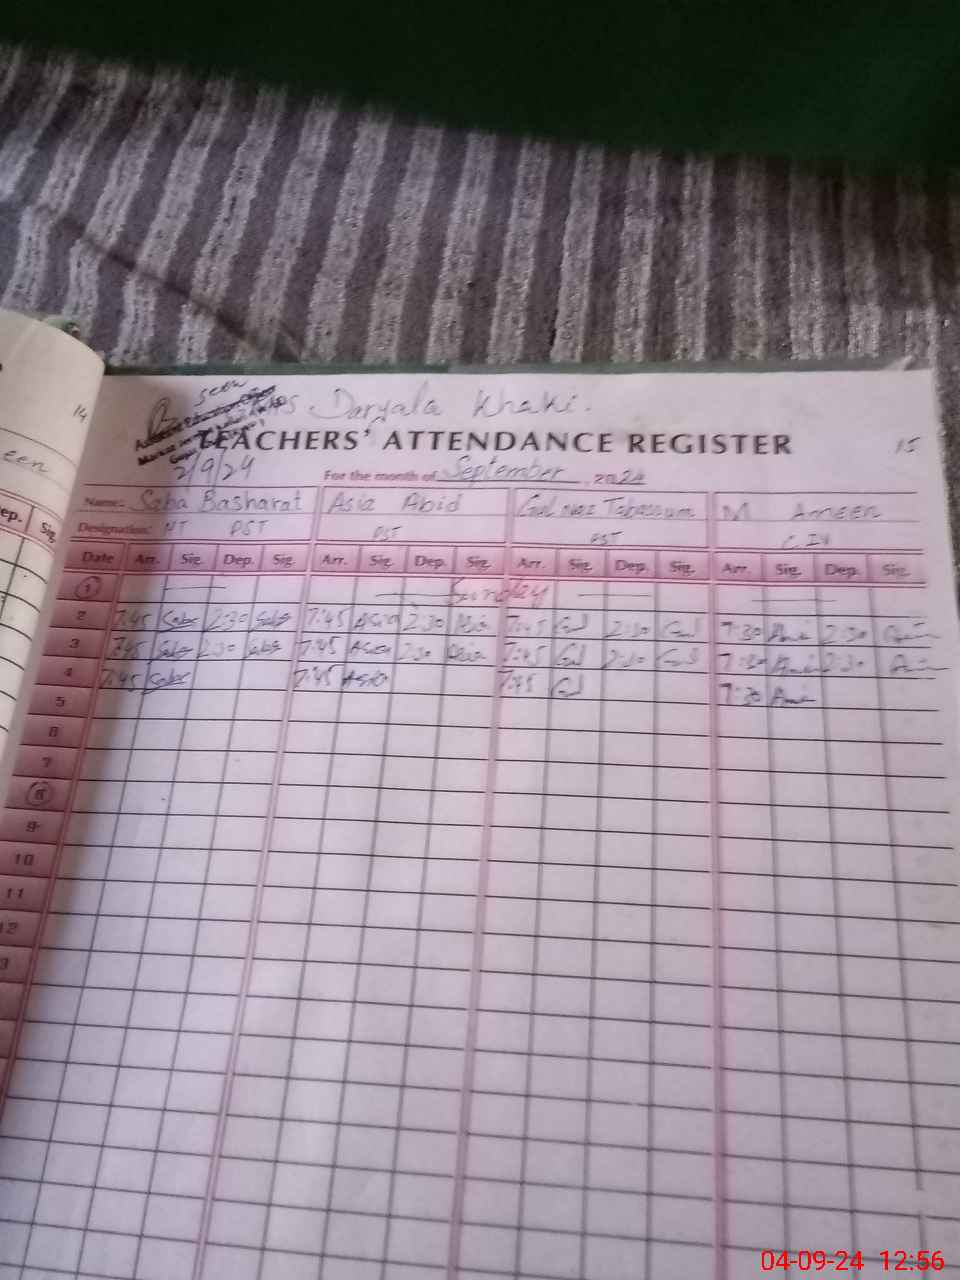 14
een
ep. Sig.
seen
PS Daryala Khaki.
TEACHERS' ATTENDANCE REGISTER 15
2/9/24 For the month of September, 2024
Name:- Saba Basharat Asia Abid Gul Naz Tabassum M Ameen
Designation: HT PST PST PST C IV
Date Arr. Sig. Dep. Sig. Arr. Sig. Dep. Sig. Arr. Sig. Dep. Sig. Arr. Sig. Dep. Sig.
1 Sunday
2 7:45 Saba 2:30 Saba 7:45 Asia 2:30 Asia 7:45 Gul 2:30 Gul 7:30 Amin 2:30 Amin
3 7:45 Saba 2:30 Saba 7:45 Asia 2:30 Asia 7:45 Gul 2:30 Gul 7:30 Amin 2:30 Amin
4 7:45 Saba 7:45 Asia 7:45 Gul 7:30 Amin
5
6
7
8
9
10
11
12
3
04-09-24 12:56